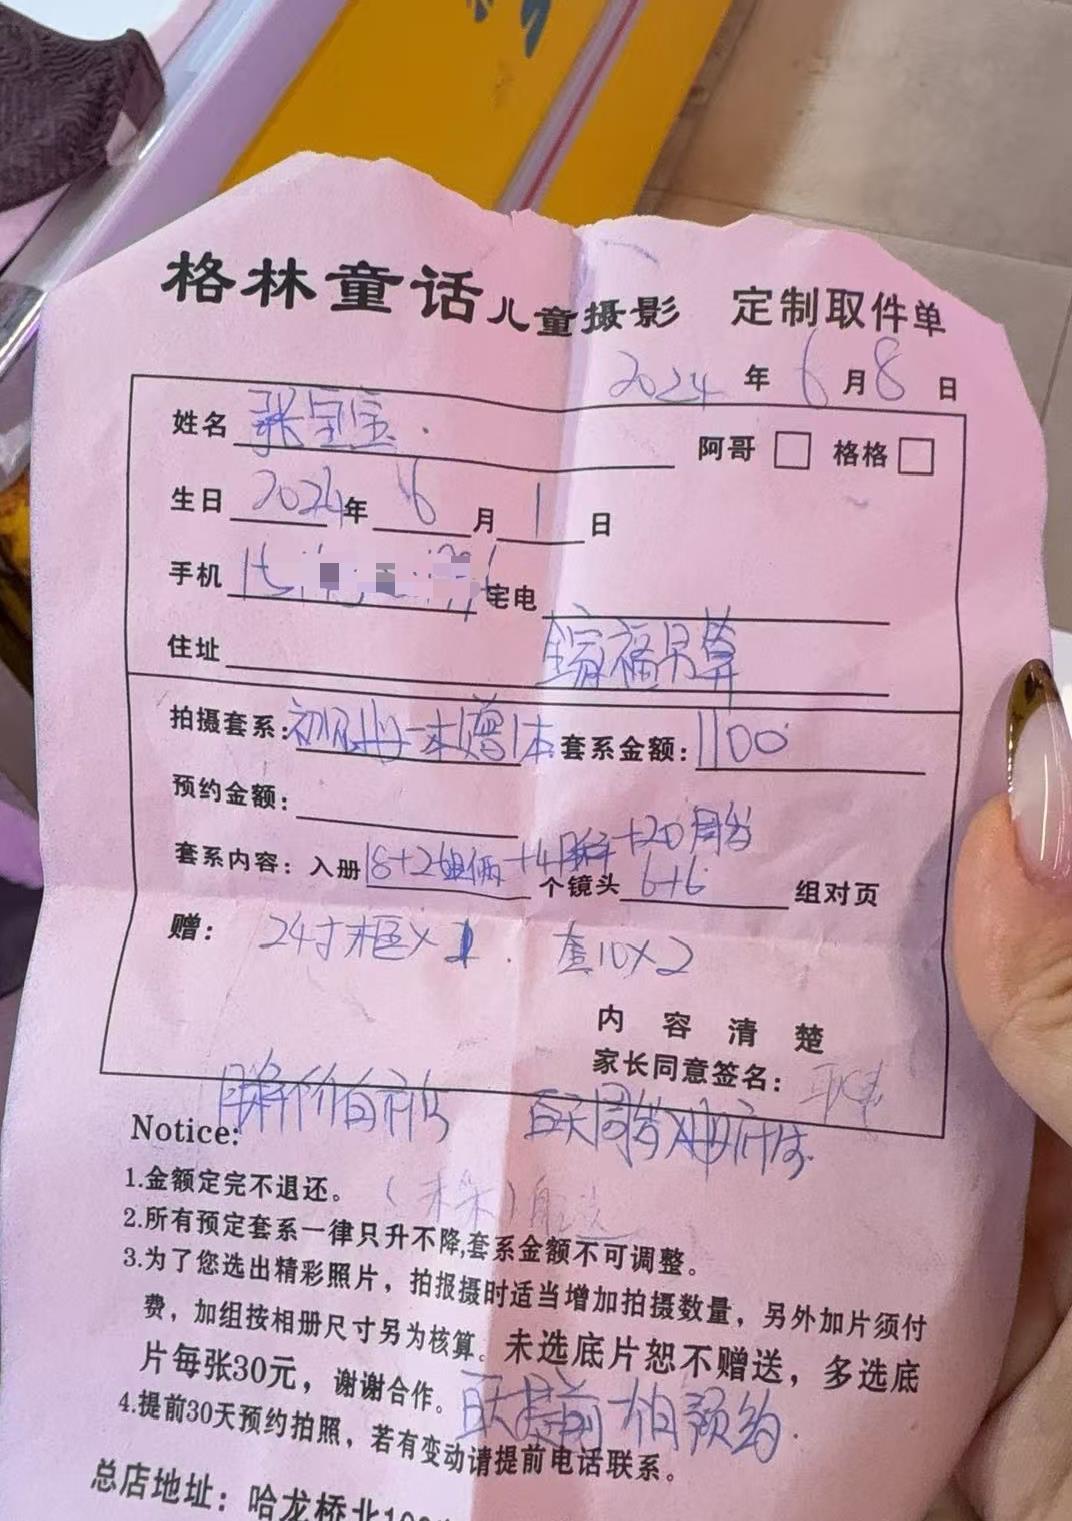 格林童话儿童摄影 定制取件单
2024年6月8日
姓名 张宝宝
阿哥 格格
生日 2024年6月1日
手机 宅电
住址
拍摄套系: 赠1本 套系金额: 1100
预约金额:
套系内容: 入册 18+2姐俩+4 +20周岁 个镜头 6+6 组对页
赠: 24寸木框× 套10×2
内容清楚
家长同意签名:
百天周岁
Notice:
1.金额定完不退还。
2.所有预定套系一律只升不降,套系金额不可调整。
3.为了您选出精彩照片，拍报摄时适当增加拍摄数量，另外加片须付
费，加组按相册尺寸另为核算。未选底片恕不赠送，多选底
片每张30元，谢谢合作。
百天提前 拍预约.
4.提前30天预约拍照，若有变动请提前电话联系。
总店地址: 哈龙桥北